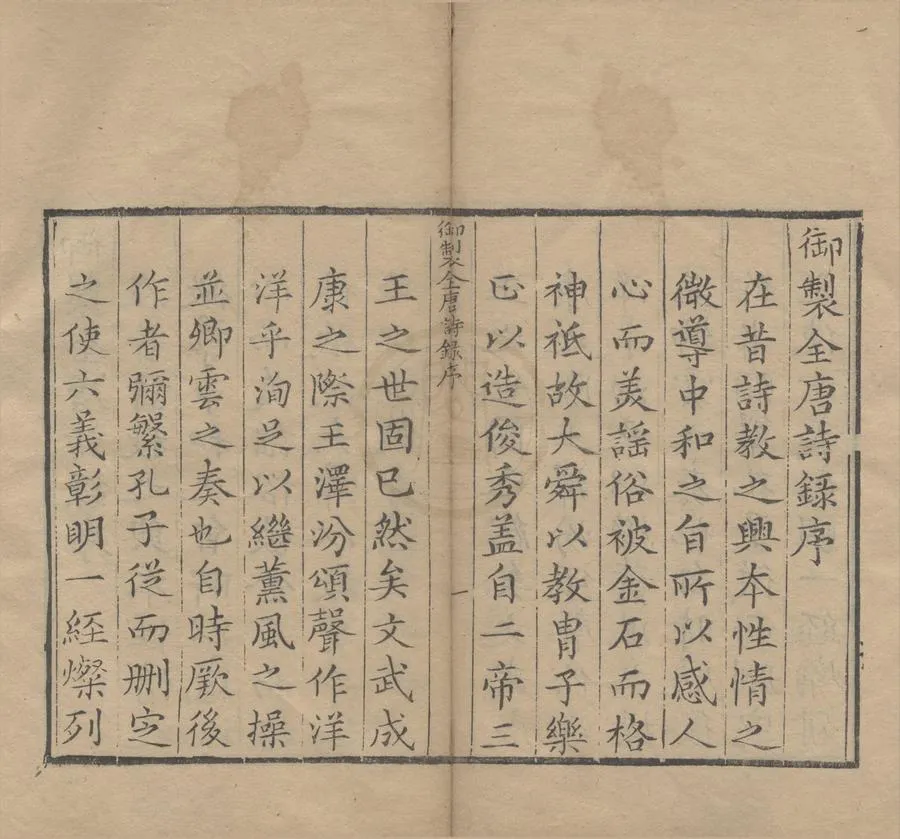 御製全唐詩録序
在昔詩教之興本性情之
微導中和之旨所以感人
心而美謡俗被金石而格
神祇故大舜以教胄子樂
正以造俊秀盖自二帝三
御製全唐詩録序
一
王之世固已然矣文武成
康之際王澤汾頌聲作洋
洋乎洵足以繼薰風之操
並卿雲之奏也自時厥後
作者彌繁孔子從而删定
之使六義彰明一經燦列